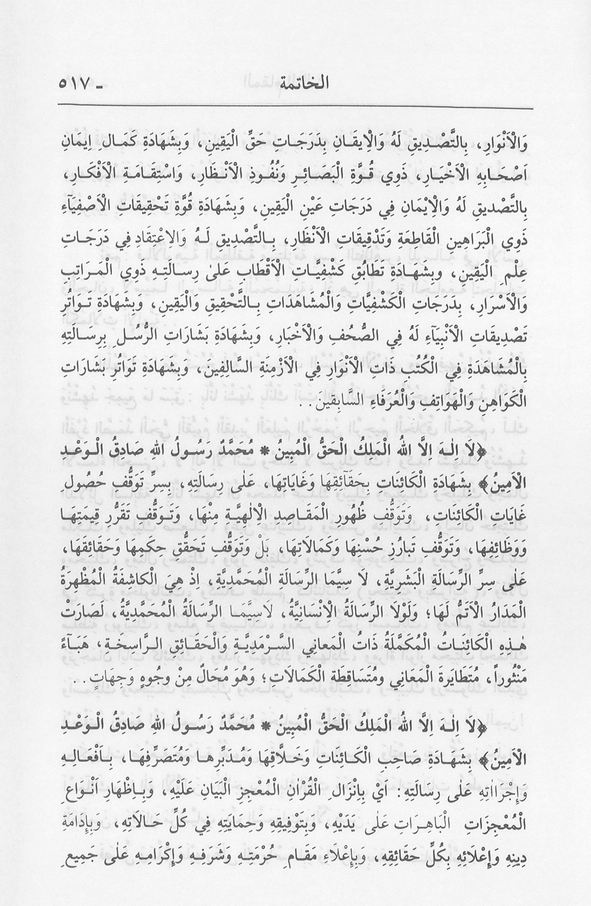 الخاتمة ـ ٥١٧
وَالْاَنْوَارِ، بِالتَّصْدِيقِ لَهُ وَالْاِيقَانِ بِدَرَجَاتِ حَقِّ الْيَقِينِ، وَبِشَهَادَةِ كَمَالِ اِيمَانِ
اَصْحَابِهِ الْاَخْيَارِ، ذَوِي قُوَّةِ الْبَصَائِرِ وَنُفُوذِ الْاَنْظَارِ، وَاسْتِقَامَةِ الْاَفْكَارِ،
بِالتَّصْدِيقِ لَهُ وَالْاِيْمَانِ فِي دَرَجَاتِ عَيْنِ الْيَقِينِ، وَبِشَهَادَةِ قُوَّةِ تَحْقِيقَاتِ الْاَصْفِيَآءِ
ذَوِي الْبَرَاهِينِ الْقَاطِعَةِ وَتَدْقِيقَاتِ الْاَنْظَارِ، بِالتَّصْدِيقِ لَهُ وَالْاِعْتِقَادِ فِي دَرَجَاتِ
عِلْمِ الْيَقِينِ، وَبِشَهَادَةِ تَطَابُقِ كَشْفِيَّاتِ الْاَقْطَابِ عَلَىٰ رِسَالَتِهِ ذَوِي الْمَرَاتِبِ
وَالْاَسْرَارِ، بِدَرَجَاتِ الْكَشْفِيَّاتِ وَالْمُشَاهَدَاتِ بِالتَّحْقِيقِ وَالْيَقِينِ، وَبِشَهَادَةِ تَوَاتُرِ
تَصْدِيقَاتِ الْاَنْبِيَآءِ لَهُ فِي الصُّحُفِ وَالْاَخْبَارِ، وَبِشَهَادَةِ بَشَارَاتِ الرُّسُلِ بِرِسَالَتِهِ
بِالْمُشَاهَدَةِ فِي الْكُتُبِ ذَاتِ الْاَنْوَارِ فِي الْاَزْمِنَةِ السَّالِفِينَ، وَبِشَهَادَةِ تَوَاتُرِ بَشَارَاتِ
الْكَوَاهِنِ وَالْهَوَاتِفِ وَالْعُرَفَاءِ السَّابِقِينَ..
﴿لَا اِلٰهَ اِلَّا اللهُ الْمَلِكُ الْحَقُّ الْمُبِينُ * مُحَمَّدٌ رَسُولُ اللهِ صَادِقُ الْوَعْدِ
الْاَمِينُ﴾ بِشَهَادَةِ الْكَائِنَاتِ بِحَقَآئِقِهَا وَغَايَاتِهَا، عَلَىٰ رِسَالَتِهِ، بِسِرِّ تَوَقُّفِ حُصُولِ
غَايَاتِ الْكَائِنَاتِ، وَتَوَقُّفِ ظُهُورِ الْمَقَاصِدِ الْاِلٰهِيَّةِ مِنْهَا، وَتَوَقُّفِ تَقَرُّرِ قِيمَتِهَا
وَوَظَائِفِهَا، وَتَوَقُّفِ تَبَارُزِ حُسْنِهَا وَكَمَالَاتِهَا، بَلْ وَتَوَقُّفِ تَحَقُّقِ حِكَمِهَا وَحَقَائِقِهَا،
عَلَى سِرِّ الرِّسَالَةِ الْبَشَرِيَّةِ، لَا سِيَّمَا الرِّسَالَةِ الْمُحَمَّدِيَّةِ، اِذْ هِيَ الْكَاشِفَةُ الْمُظْهِرَةُ
الْمَدَارُ الْاَتَمُّ لَهَا؛ وَلَوْلَا الرِّسَالَةُ الْاِنْسَانِيَّةُ، لَاسِيَّمَا الرِّسَالَةُ الْمُحَمَّدِيَّةُ، لَصَارَتْ
هٰذِهِ الْكَائِنَاتُ الْمُكَمَّلَةُ ذَاتُ الْمَعَانِي السَّرْمَدِيَّةِ وَالْحَقَائِقِ الرَّاسِخَةِ، هَبَآءً
مَنْثُوراً، مُتَطَايِرَةَ الْمَعَانِي وَمُتَسَاقِطَةَ الْكَمَالَاتِ؛ وَهُوَ مُحَالٌ مِنْ وُجُوهٍ وَجِهَاتٍ..
﴿لَا اِلٰهَ اِلَّا اللهُ الْمَلِكُ الْحَقُّ الْمُبِينُ * مُحَمَّدٌ رَسُولُ اللهِ صَادِقُ الْوَعْدِ
الْاَمِينُ﴾ بِشَهَادَةِ صَاحِبِ الْكَائِنَاتِ وَخَلَّاقِهَا وَمُدَبِّرِهَا وَمُتَصَرِّفِهَا، بِاَفْعَالِهِ
وَاِجْرَاٰتِهِ عَلَى رِسَالَتِهِ: اَيْ بِاِنْزَالِ الْقُرْاٰنِ الْمُعْجِزِ الْبَيَانِ عَلَيْهِ، وَبِاِظْهَارِ اَنْوَاعِ
الْمُعْجِزَاتِ الْبَاهِرَاتِ عَلَى يَدَيْهِ، وَبِتَوْفِيقِهِ وَحِمَايَتِهِ فِي كُلِّ حَالَاتِهِ، وَبِاِدَامَةِ
دِينِهِ وَاِعْلَائِهِ بِكُلِّ حَقَائِقِهِ، وَبِاِعْلَاءِ مَقَامِ حُرْمَتِهِ وَشَرَفِهِ وَاِكْرَامِهِ عَلَىٰ جَمِيعِ